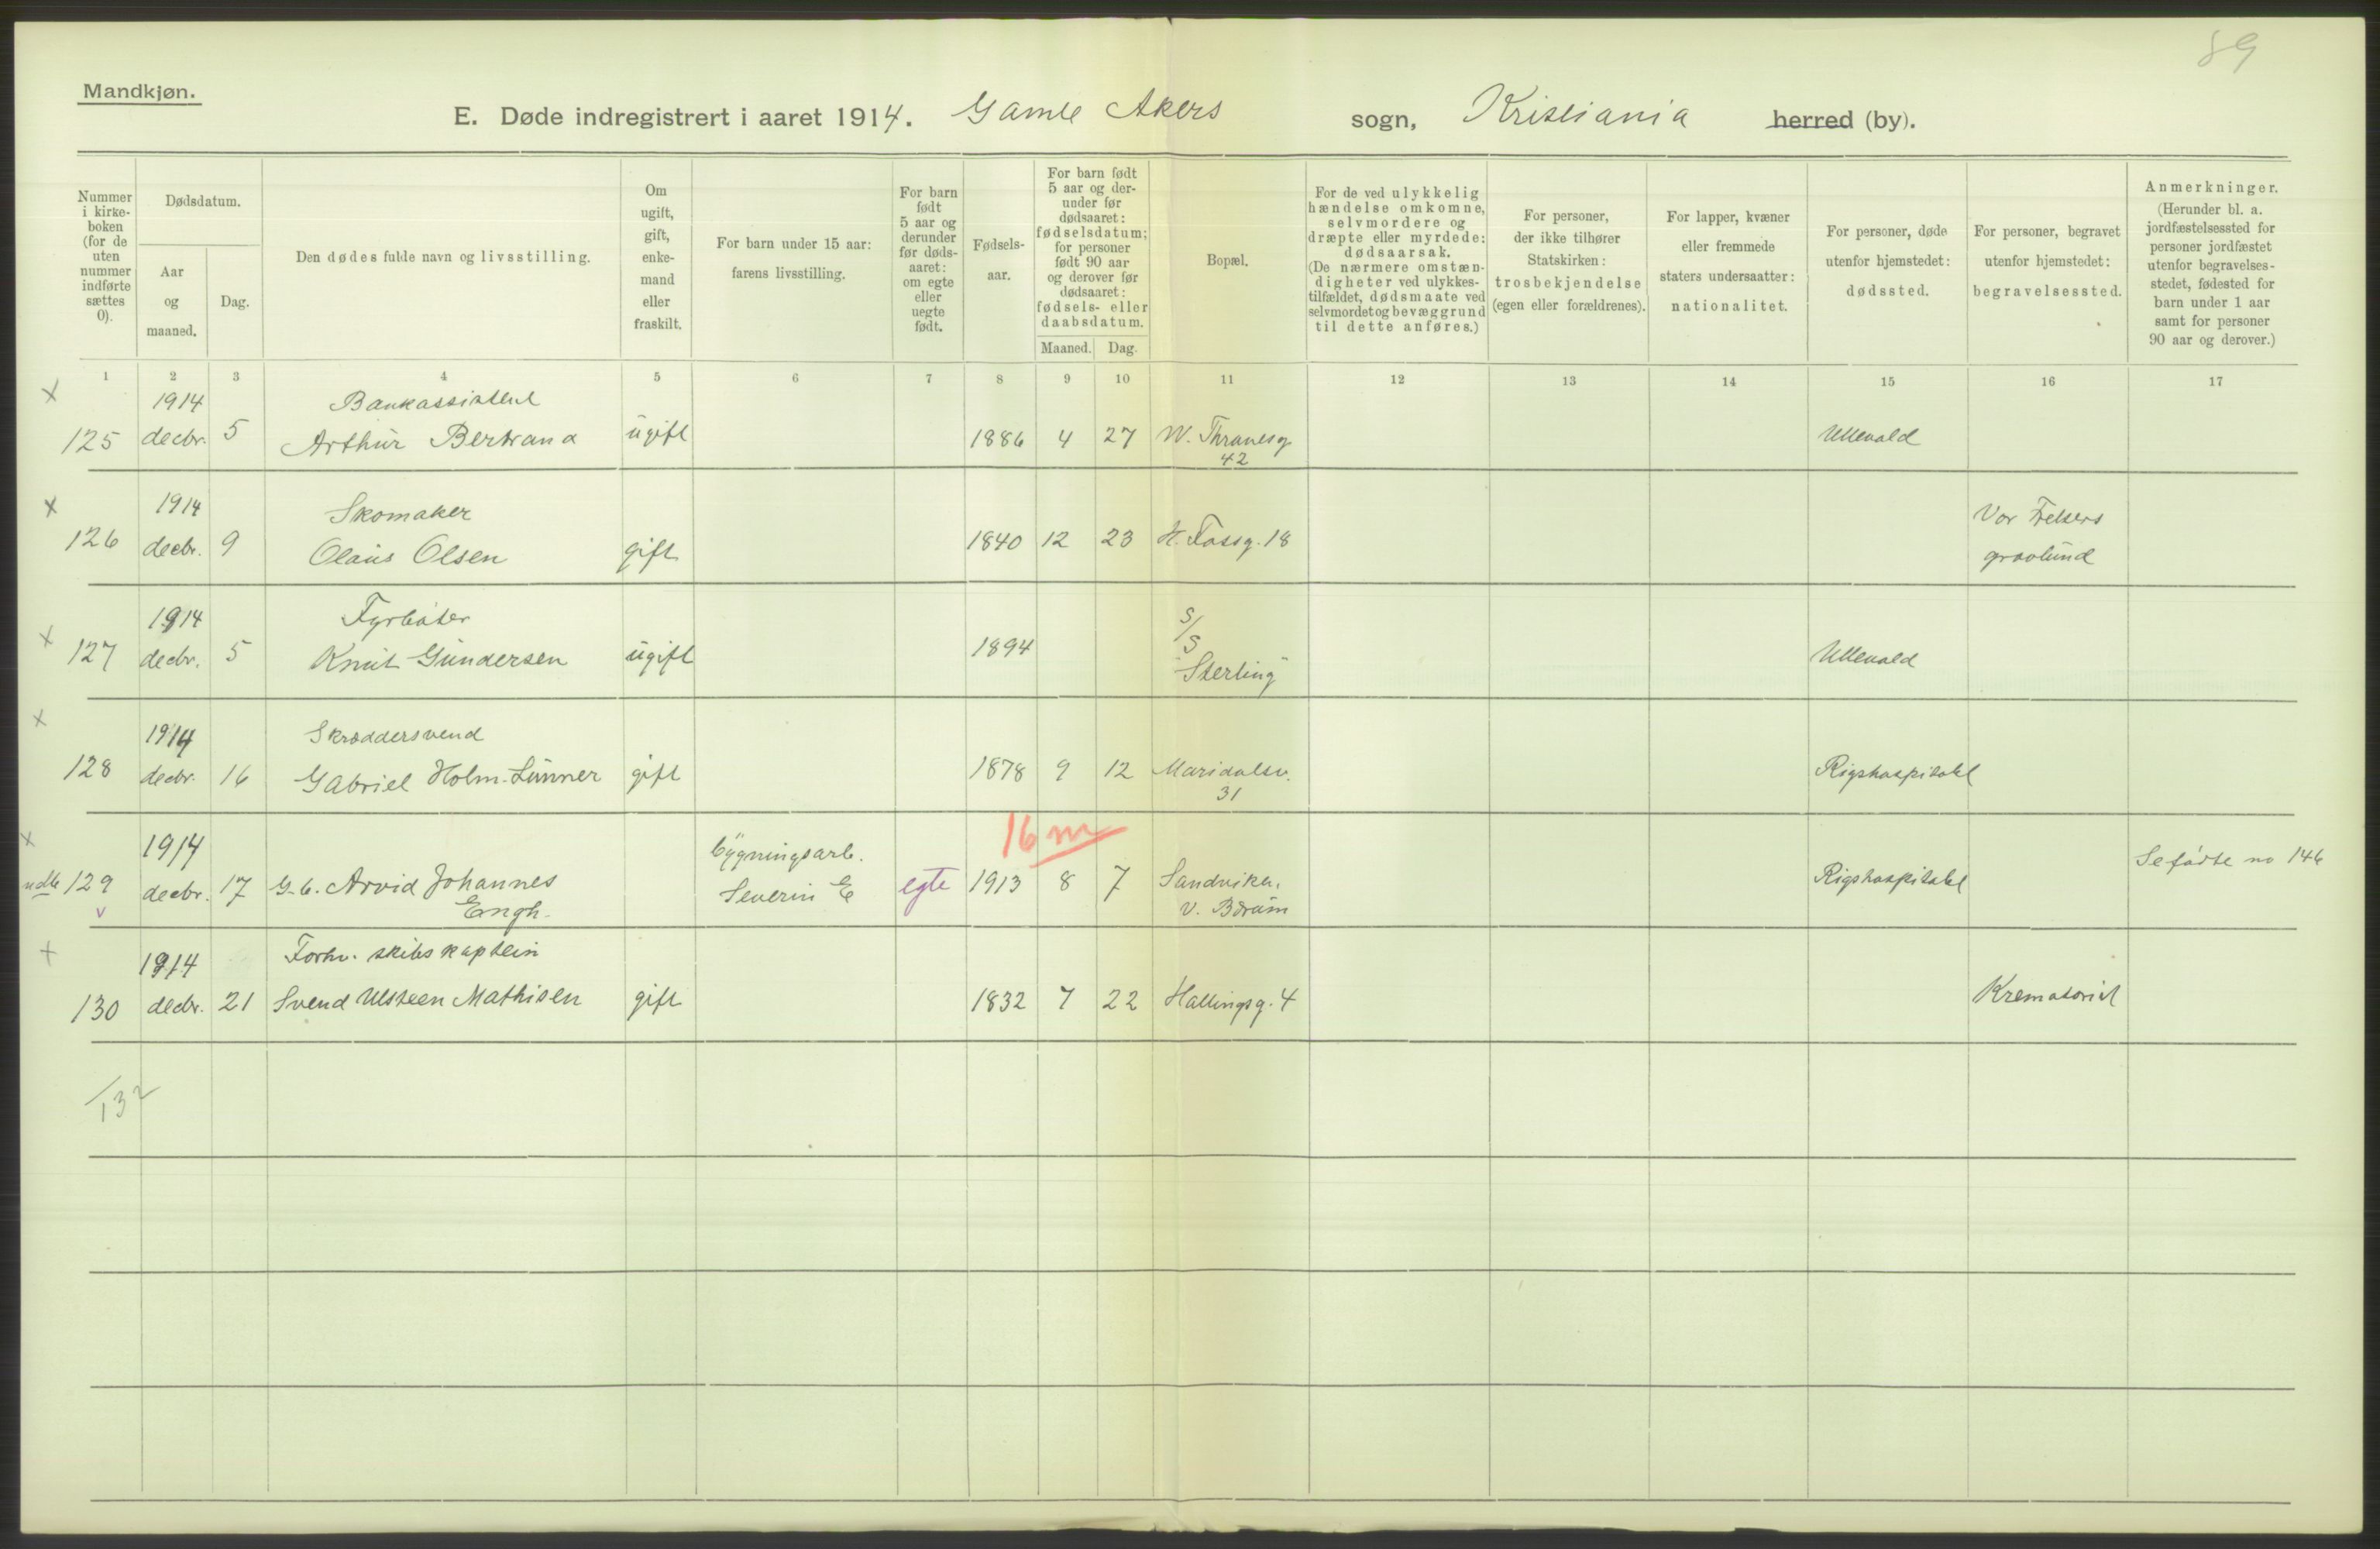 89
Mandkjøn.
E. Døde indregistrert i aaret 1914. Gamle Akers sogn, Kristiania herred (by).
Nummer
i kirke-
boken
(for de
uten
nummer
indførte
sættes
0).
Dødsdatum.
Aar
og
maaned.
Dag.
Den dødes fulde navn og livsstilling.
Om
ugift,
gift,
enke-
mand
eller
fraskilt.
For barn under 15 aar:
farens livsstilling.
For barn
født
5 aar og
derunder
før døds-
aaret:
om egte
eller
uegte
født.
Fødsels-
aar.
For barn født
5 aar og der-
under før
dødsaaret:
fødselsdatum;
for personer
født 90 aar
og derover før
dødsaaret:
fødsels- eller
daabsdatum.
Maaned. Dag.
Bopæl.
For de ved ulykkelig
hændelse omkomne,
selvmordere og
dræpte eller myrdede:
dødsaarsak.
(De nærmere omstæn-
digheter ved ulykkes-
tilfældet, dødsmaate ved
selvmordet og bevæggrund
til dette anføres.)
For personer,
der ikke tilhører
Statskirken:
trosbekjendelse
(egen eller forældrenes).
For lapper, kvæner
eller fremmede
staters undersaatter:
nationalitet.
For personer, døde
utenfor hjemstedet:
dødssted.
For personer, begravet
utenfor hjemstedet:
begravelsessted.
Anmerkninger.
(Herunder bl. a.
jordfæstelsessted for
personer jordfæstet
utenfor begravelses-
stedet, fødested for
barn under 1 aar
samt for personer
90 aar og derover.)
1 2 3 4 5 6 7 8 9 10 11 12 13 14 15 16 17
x 1914 Bankassistent
125 decbr. 5 Arthur Bertrand ugift 1886 4 27 W. Thranesg Ullevold
42
x 1914 Skomaker Vor Frelsers
126 decbr. 9 Olaus Olsen gift 1840 12 23 H. Fossg. 18 gravlund
1914 Fyrbøter S/S
x 127 decbr. 5 Knut Gundersen ugift 1894 "Sterling" Ullevold
x 1914 Skræddersvend
128 decbr. 16 Gabriel Holm-Lunner gift 1878 9 12 Maridalsv. Rigshospitalet
31
16 m
x 1914 bygningsarb. Se førte no 146
129 decbr. 17 G. b. Arvid Johannes Severin E egte 1913 8 7 Sandviken, Rigshospitalet
v Engh. V. Bærum
+ 1914 Forhv. skibskaptein
130 decbr. 21 Svend Ulsteen Mathisen gift 1832 7 22 Hallingsg. 4 Krematoriet
132